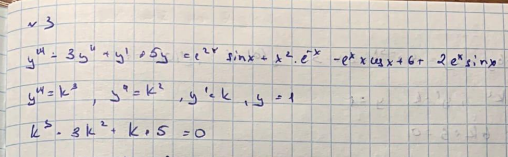 № 3
y''' - 3y'' + y' + 5y = e^{2x} sinx + x² · e^{-x} - e^x x cosx + 6 + 2e^x sinx
y''' = k³, y'' = k², y' = k, y = 1
k³ - 3k² + k + 5 = 0